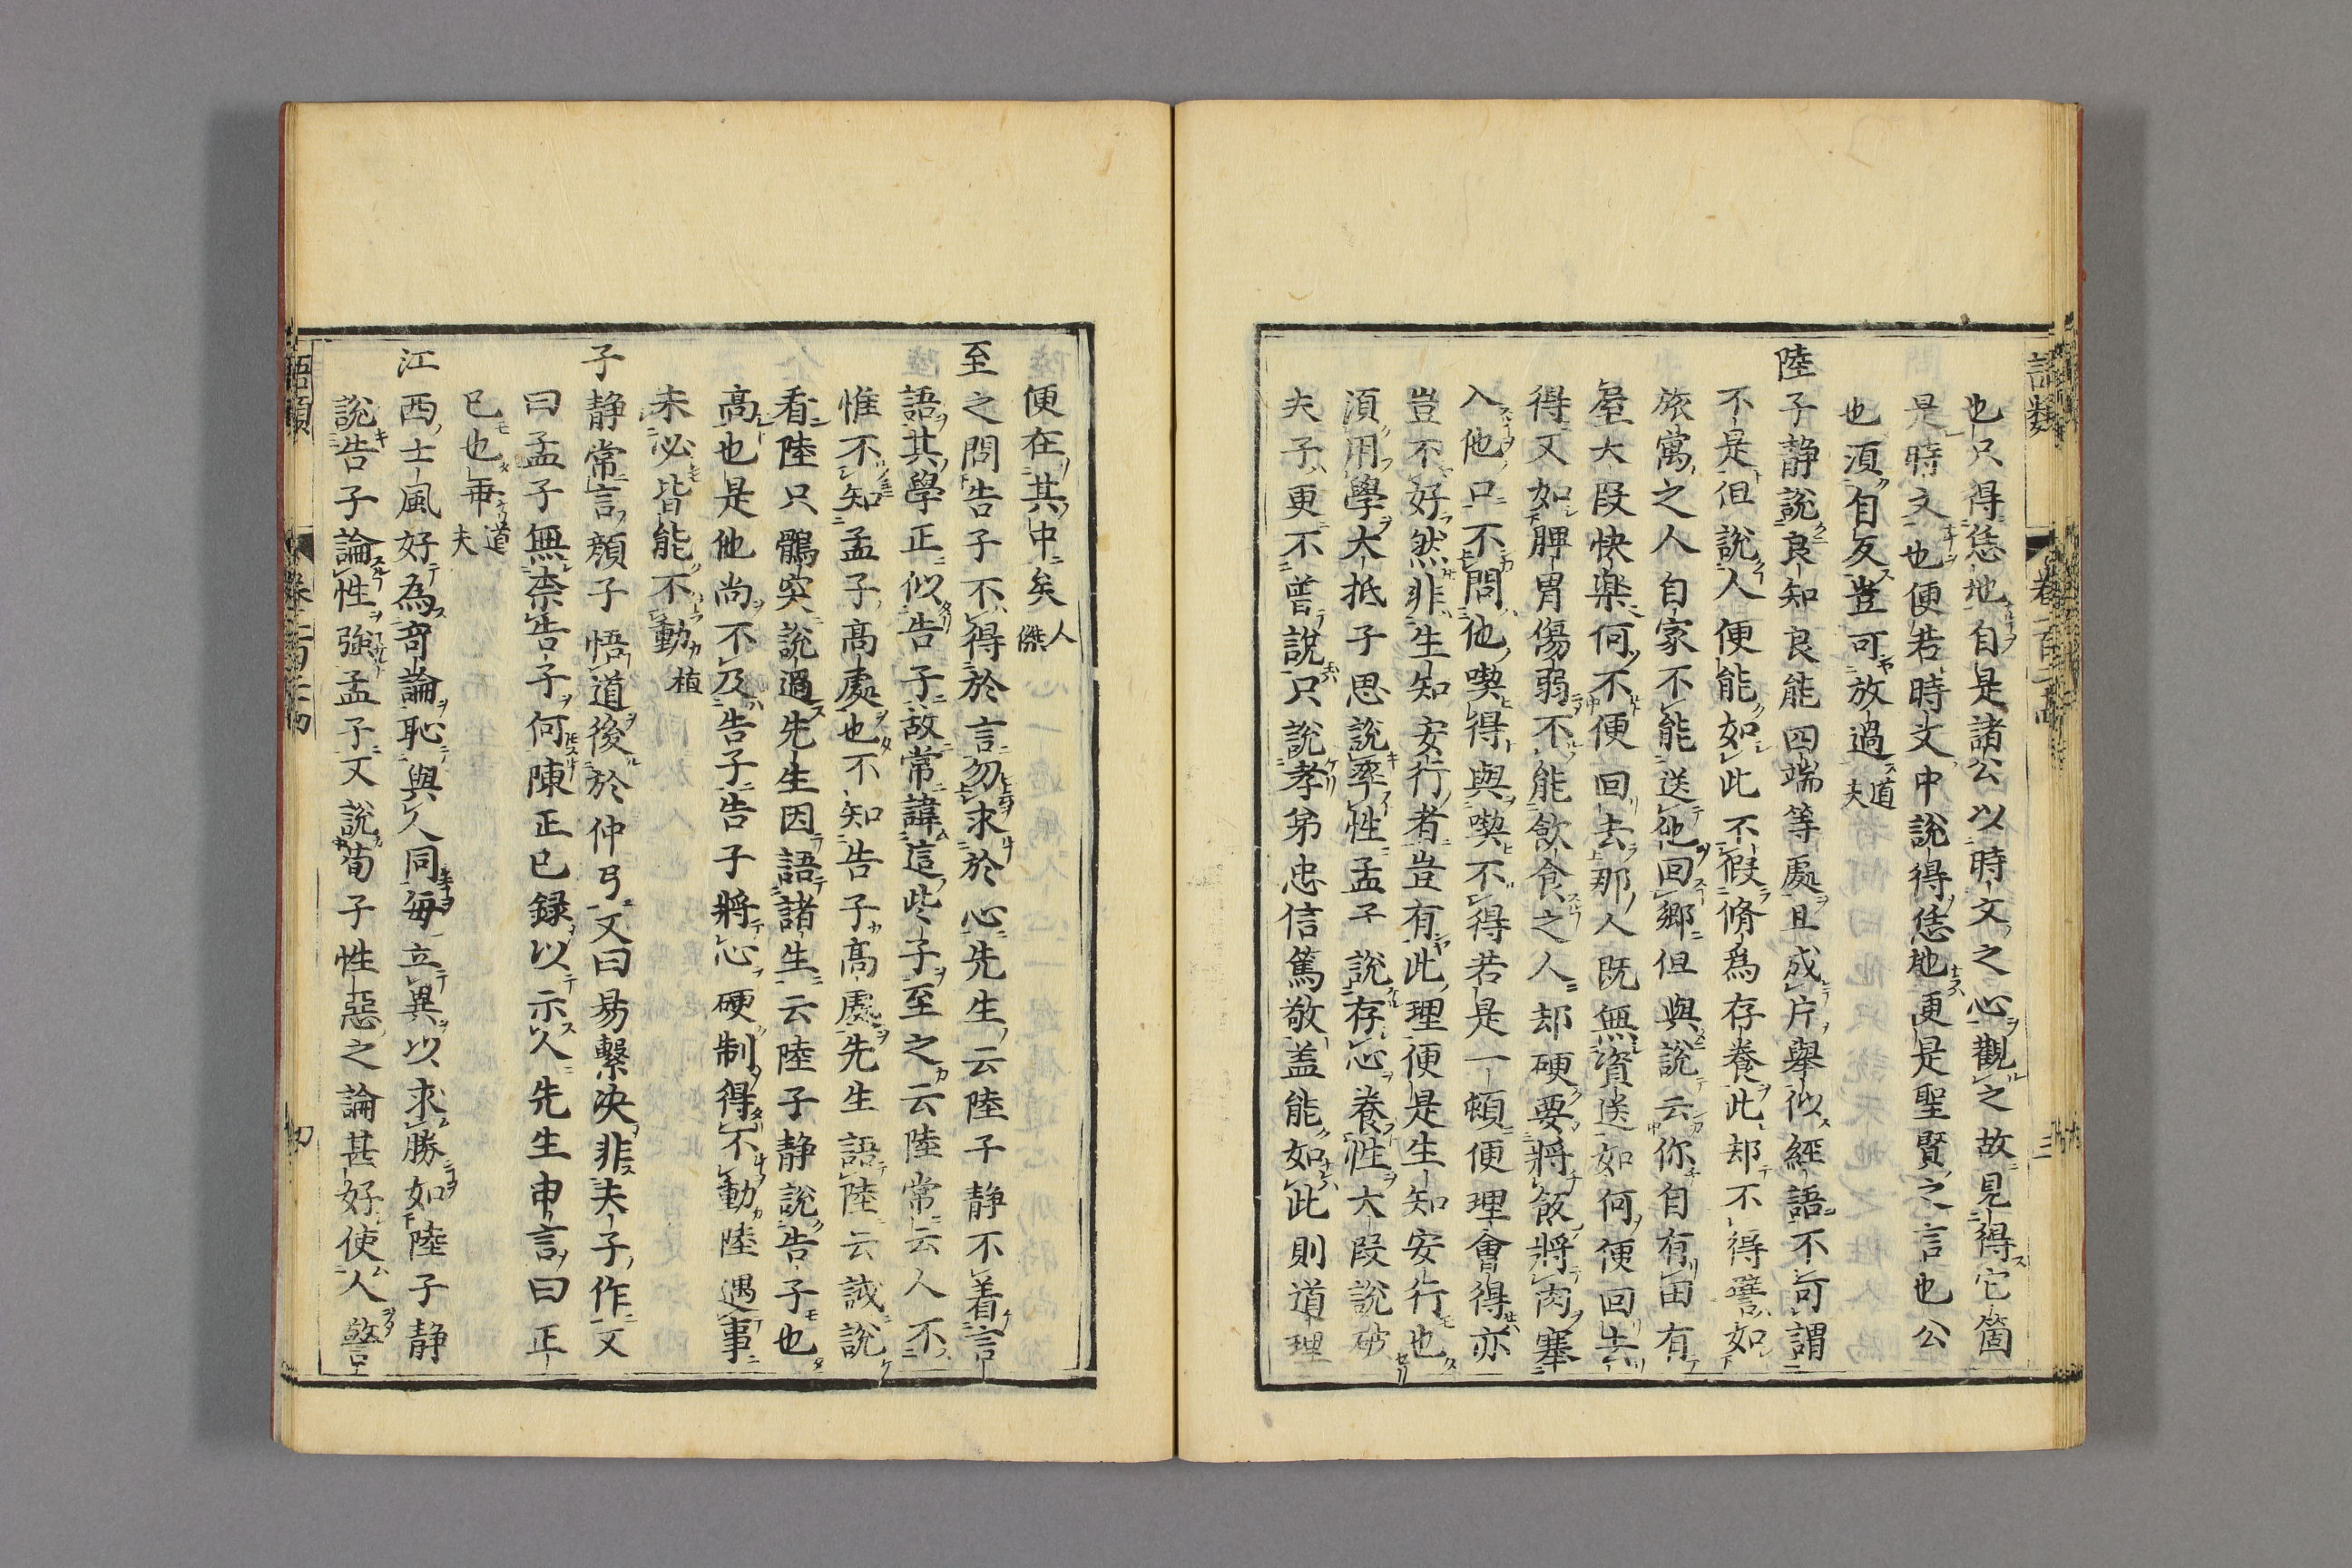 語類
卷一百二十四
三
也只得恁地自是諸公以時文之心觀之故見得它箇
是時文也便若時文中說得恁地更是聖賢之言也公
也須自反豈可放過道夫
陸子静說良知良能四端等處且成片舉似經語不可謂
不是但說人便能如此不假脩爲存養此却不得譬如
旅寓之人自家不能送他回郷但與說云你自有田有
屋大段快樂何不便回去那人既無資送如何便回去
得又如脾胃傷弱不能飲食之人却硬要將飯將肉塞
入他口不問他喫得與喫不得若是一頓便理會得亦
豈不好然非生知安行者豈有此理便是生知安行也
湏用學大抵子思說率性孟子說存心養性大段說破
夫子更不曽說只說孝弟忠信篤敬盖能如此則道理
便在其中矣人傑
至之問告子不得於言勿求於心先生云陸子静不着言
語其學正似告子故常諱這些子至之云陸常云人不
惟不知孟子髙處也不知告子髙處先生語陸云試說
看陸只鶻突說過先生因語諸生云陸子静說告子也
髙也是他尚不及告子告子將心硬制得不動陸遇事
未必皆能不動植
子静常言顔子悟道後於仲弓又曰易繋决非夫子作又
曰孟子無柰告子何陳正已録以示人先生申言曰正
已也乖道夫
江西士風好為竒論恥與人同毎立異以求勝如陸子静
說告子論性強孟子又說荀子性惡之論甚好使人警
語類